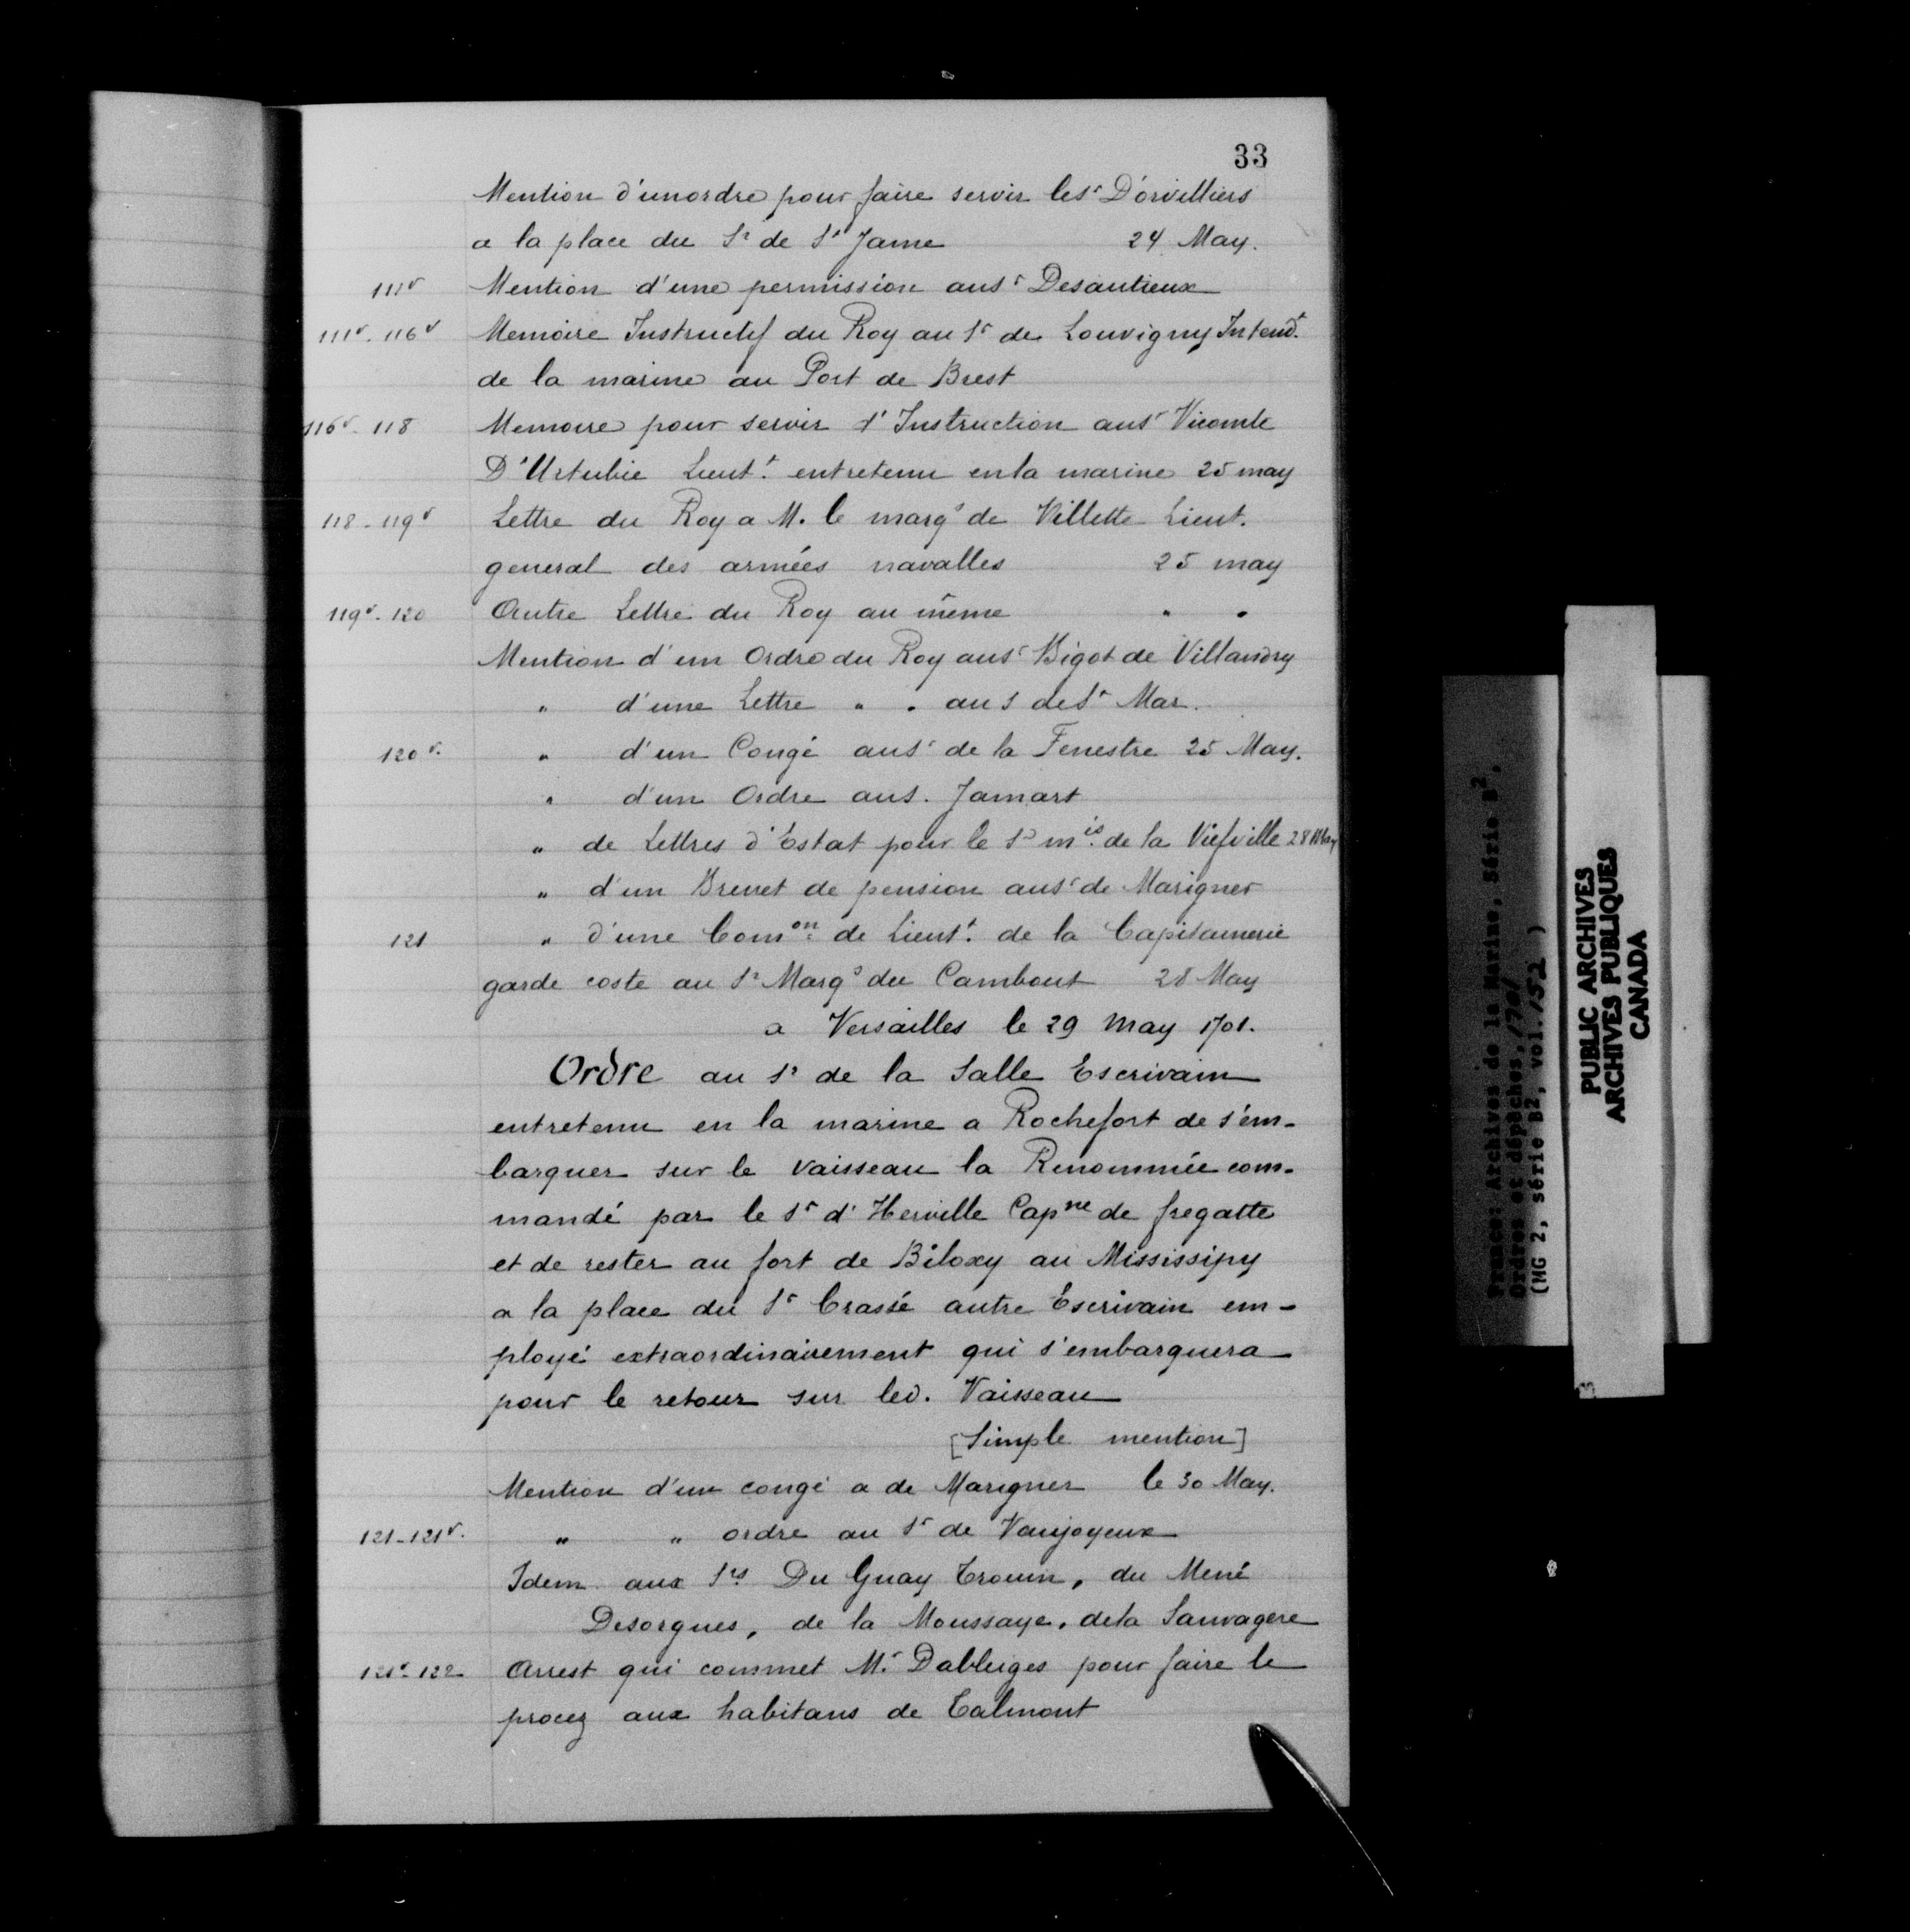 33
Mention d'un ordre pour faire servir le Sr D'orvilliers
a la place du Sr de St Jame 24 May.
111v Mention d'une permission au Sr Desautieux
111v-116v Memoire Instructif du Roy au Sr de Louvigny Intendt.
de la marine au Port de Brest
116v-118 Memoire pour servir d'Instruction au Sr Vicomte
D'Urtubie Lieutt. entretenu en la marine 25 may
118-119v Lettre du Roy a M. le margs de Villette Lieut.
general des armées navalles 25 may
119v-120 Autre Lettre du Roy au même " "
Mention d'un Ordre du Roy au Sr Bigot de Villandry
" d'une Lettre " " au S de St Mar.
120v. " d'un Congé au Sr de la Fenestre 25 May.
" d'un Ordre au S. Jamart
" de Lettres d'Estat pour le Sr mis. de la Viefville 28 May
" d'un Brevet de pension au Sr de Marigner
121 " d'une Comon. de Lieutt. de la Capitainerie
garde coste au Sr Margs du Cambout 28 May
a Versailles le 29 May 1701.
Ordre au Sr de la Salle Escrivain
entretenu en la marine a Rochefort de s'em-
barquer sur le vaisseau la Renommée com-
mandé par le Sr d'Herville Capne de fregatte
et de rester au fort de Biloxy au Mississipy
a la place du Sr Crassé autre Escrivain em-
ployé extraordinairement qui s'embarquera
pour le retour sur led. Vaisseau
[Simple mention]
Mention d'un congé a de Marigner le 30 May.
121-121v. " " ordre au Sr de Vaujoyeux
Idem aux Srs Du Guay Trouin, du Mené
Desorgues, de la Moussaye, de la Sauvagere
121v-122 Arrest qui commet Mr. Dableiges pour faire le
procez aux habitans de Talmont
France: Archives de la Marine, Série B2,
Ordres et dépêches, 1701
(MG 2, série B2, vol. 152 )
PUBLIC ARCHIVES
ARCHIVES PUBLIQUES
CANADA